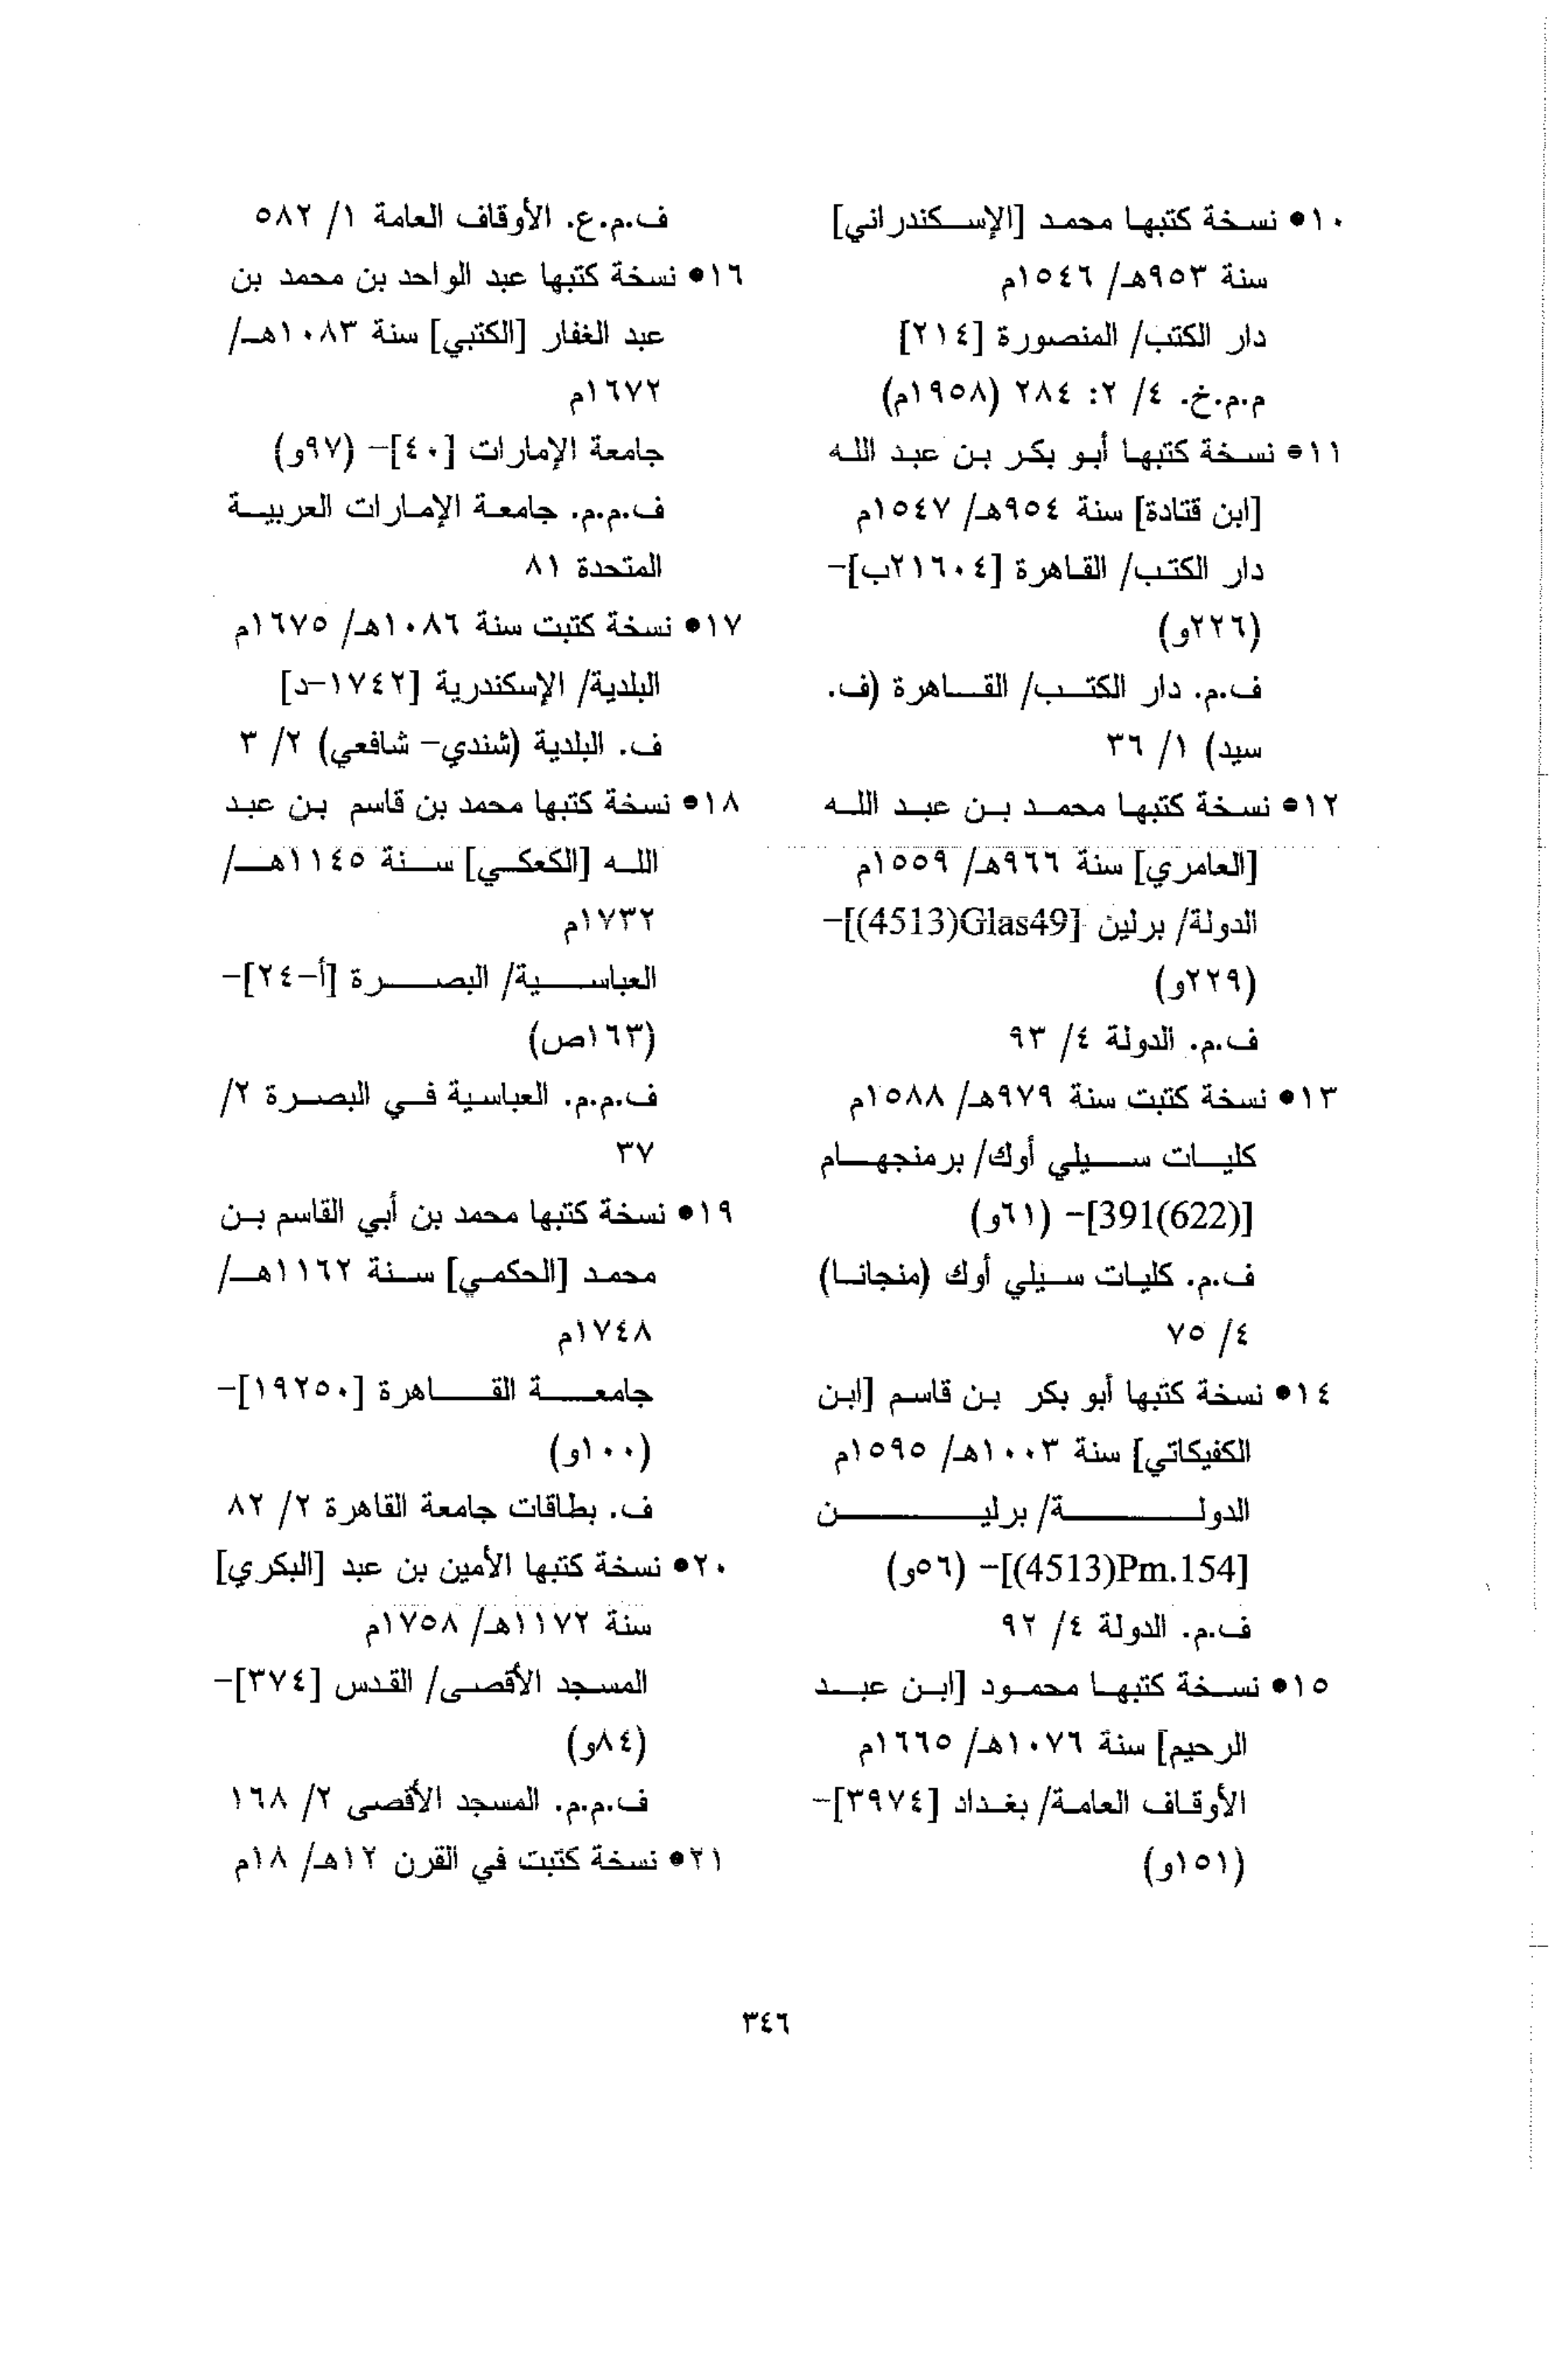 ١٠• نسخة كتبها محمد [الإسكندراني]
سنة ٩٥٣هـ/ ١٥٤٦م
دار الكتب/ المنصورة [٢١٤]
م.م.خ. ٤/ ٢: ٢٨٤ (١٩٥٨م)
١١• نسخة كتبها أبو بكر بن عبد الله
[ابن قتادة] سنة ٩٥٤هـ/ ١٥٤٧م
دار الكتب/ القاهرة [٢١٦٠٤ب]-
(٢٢٦و)
ف.م. دار الكتب/ القاهرة (ف.
سيد) ١/ ٣٦
١٢• نسخة كتبها محمد بن عبد الله
[العامري] سنة ٩٦٦هـ/ ١٥٥٩م
الدولة/ برلين [4513)Glas49)]-
(٢٢٩و)
ف.م. الدولة ٤/ ٩٣
١٣• نسخة كتبت سنة ٩٧٩هـ/ ١٥٨٨م
كليات سيلي أوك/ برمنجهام
[391(622)]- (٦١و)
ف.م. كليات سيلي أوك (منجانا)
٤/ ٧٥
١٤• نسخة كتبها أبو بكر بن قاسم [ابن
الكفيكاتي] سنة ١٠٠٣هـ/ ١٥٩٥م
الدولة/ برلين
[4513)Pm.154)]- (٥٦و)
ف.م. الدولة ٤/ ٩٢
١٥• نسخة كتبها محمود [ابن عبد
الرحيم] سنة ١٠٧٦هـ/ ١٦٦٥م
الأوقاف العامة/ بغداد [٣٩٧٤]-
(١٥١و)
ف.م.ع. الأوقاف العامة ١/ ٥٨٢
١٦• نسخة كتبها عبد الواحد بن محمد بن
عبد الغفار [الكتبي] سنة ١٠٨٣هـ/
١٦٧٢م
جامعة الإمارات [٤٠]- (٩٧و)
ف.م.م. جامعة الإمارات العربية
المتحدة ٨١
١٧• نسخة كتبت سنة ١٠٨٦هـ/ ١٦٧٥م
البلدية/ الإسكندرية [١٧٤٢-د]
ف. البلدية (شندي- شافعي) ٢/ ٣
١٨• نسخة كتبها محمد بن قاسم بن عبد
الله [الكعكي] سنة ١١٤٥هـ/
١٧٣٢م
العباسية/ البصرة [أ-٢٤]-
(١٦٣ص)
ف.م.م. العباسية في البصرة ٢/
٣٧
١٩• نسخة كتبها محمد بن أبي القاسم بن
محمد [الحكمي] سنة ١١٦٢هـ/
١٧٤٨م
جامعة القاهرة [١٩٢٥٠]-
(١٠٠و)
ف. بطاقات جامعة القاهرة ٢/ ٨٢
٢٠• نسخة كتبها الأمين بن عبد [البكري]
سنة ١١٧٢هـ/ ١٧٥٨م
المسجد الأقصى/ القدس [٣٧٤]-
(٨٤و)
ف.م.م. المسجد الأقصى ٢/ ١٦٨
٢١• نسخة كتبت في القرن ١٢هـ/ ١٨م
٣٤٦